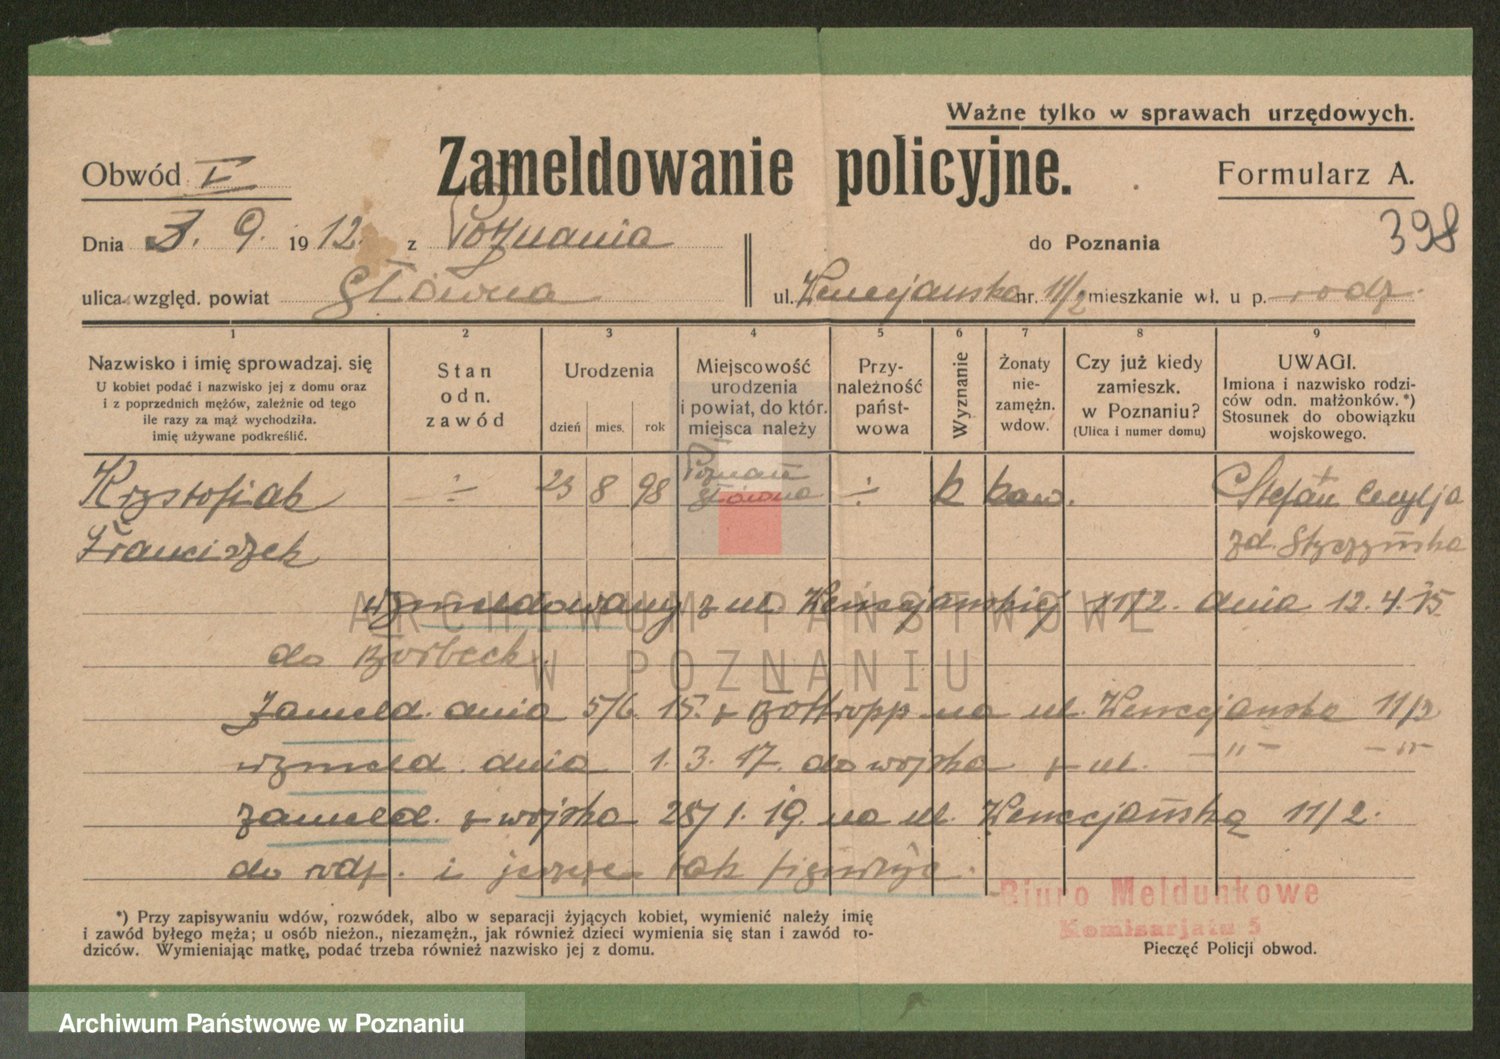 Ważne tylko w sprawach urzędowych.
Obwód V
Zameldowanie policyjne.
Formularz A.
398
Dnia 3. 9. 1912. z Poznania
do Poznania
ulica względ. powiat Główna
ul. Wenecjańska nr. 11/2 mieszkanie wł. u p. rodz.
1 2 3 4 5 6 7 8 9
Nazwisko i imię sprowadzaj. się
U kobiet podać i nazwisko jej z domu oraz
i z poprzednich mężów, zależnie od tego
ile razy za mąż wychodziła.
imię używane podkreślić.
Stan
odn.
zawód
Urodzenia
dzień mies. rok
Miejscowość
urodzenia
i powiat, do któr.
miejsca należy
Przy-
należność
państ-
wowa
Wyznanie
Żonaty
nie-
zamężn.
wdow.
Czy już kiedy
zamieszk.
w Poznaniu?
(Ulica i numer domu)
UWAGI.
Imiona i nazwisko rodzi-
ców odn. małżonków.*)
Stosunek do obowiązku
wojskowego.
Krzystofiak ÷ 23 8 98 Poznań Główna ÷ k kaw. Stefan Cecylja
Franciszek zd. Styczyńska
wymeldowany z ul Wenecjańskiej 11/2. dnia 12.4.15
do Borbeck
Zameld. dnia 5/6. 15. z Bottropp na ul. Wenecjańska 11/2
wymeld. dnia 1. 3. 17. do wojska z ul. -"- -"-
zameld. z wojska 25/1. 19. na ul. Wenecjańską 11/2.
do rodz. i jeszcze tak figuruje.
*) Przy zapisywaniu wdów, rozwódek, albo w separacji żyjących kobiet, wymienić należy imię
i zawód byłego męża; u osób nieżon., niezamężn., jak również dzieci wymienia się stan i zawód ro-
dziców. Wymieniając matkę, podać trzeba również nazwisko jej z domu.
Biuro Meldunkowe
Komisarjatu 5
Pieczęć Policji obwod.
ARCHIWUM PAŃSTWOWE
W POZNANIU
Archiwum Państwowe w Poznaniu